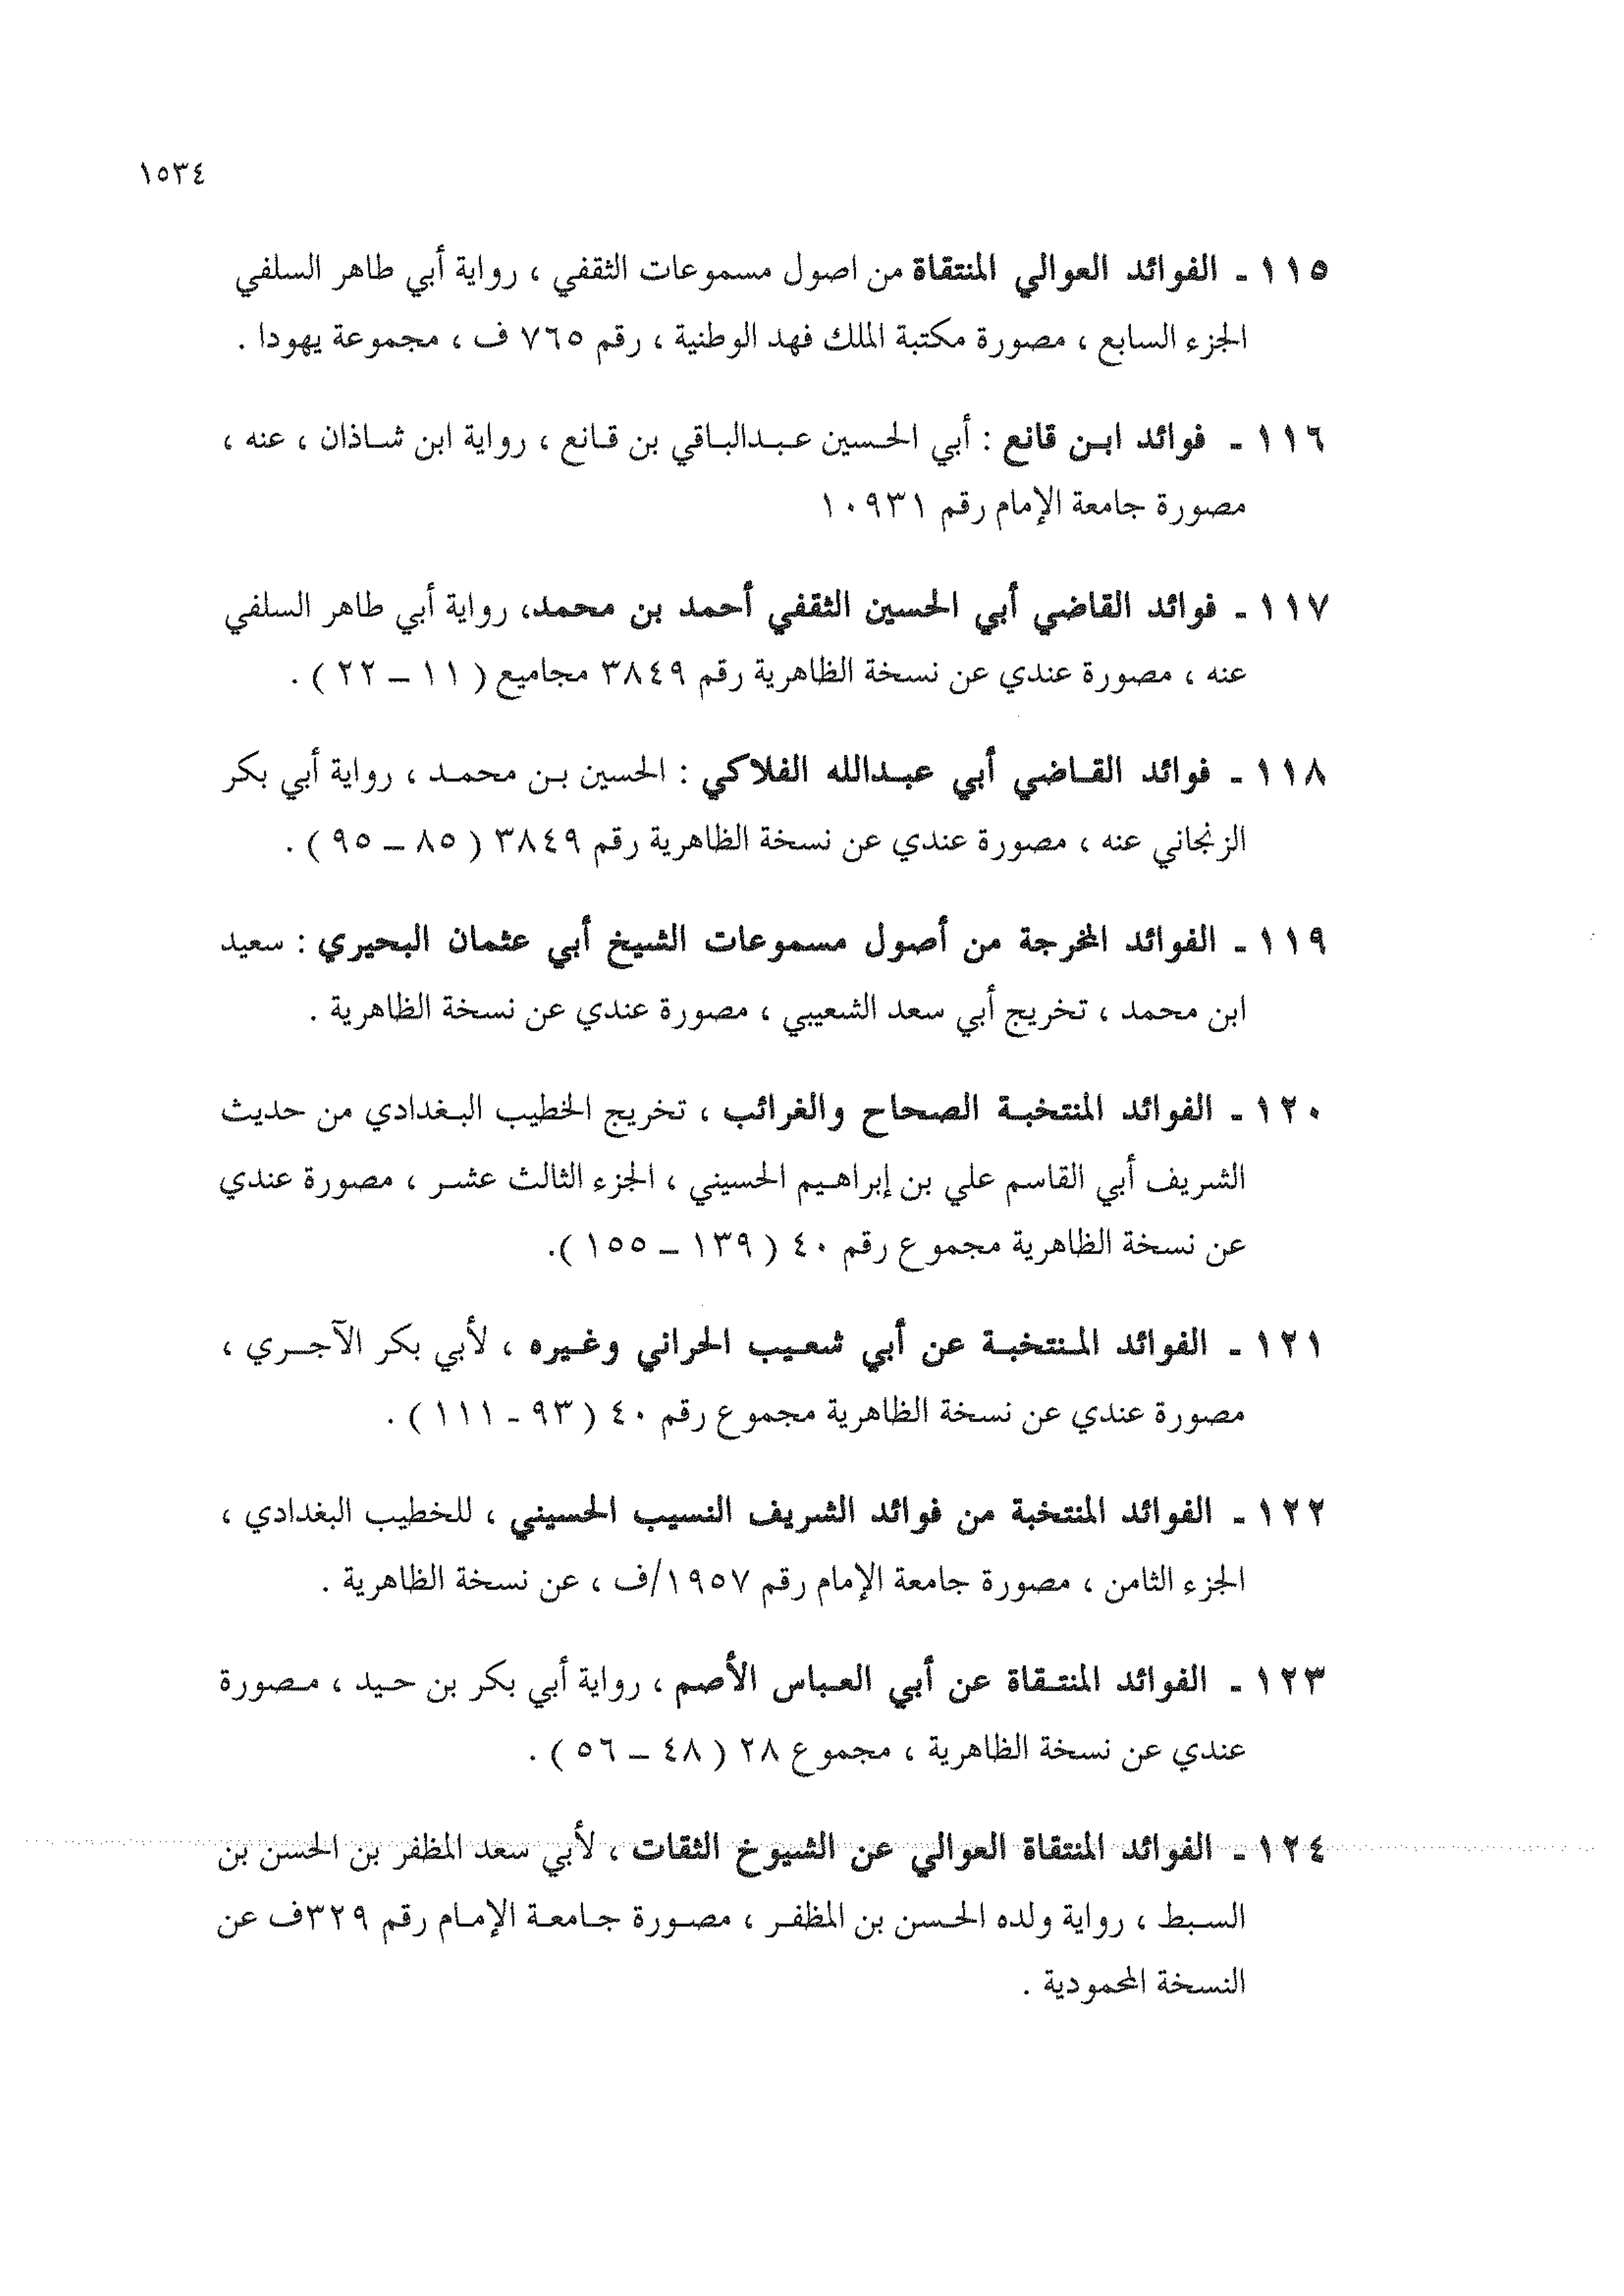 ١٥٣٤
١١٥ - الفوائد العوالي المنتقاة من اصول مسموعات الثقفي ، رواية أبي طاهر السلفي
الجزء السابع ، مصورة مكتبة الملك فهد الوطنية ، رقم ٧٦٥ ف ، مجموعة يهودا .
١١٦ - فوائد ابن قانع : أبي الحسين عبدالباقي بن قانع ، رواية ابن شاذان ، عنه ،
مصورة جامعة الإمام رقم ١٠٩٣١
١١٧ - فوائد القاضي أبي الحسين الثقفي أحمد بن محمد، رواية أبي طاهر السلفي
عنه ، مصورة عندي عن نسخة الظاهرية رقم ٣٨٤٩ مجاميع ( ١١ – ٢٢ ) .
١١٨ - فوائد القاضي أبي عبدالله الفلاكي : الحسين بن محمد ، رواية أبي بكر
الزنجاني عنه ، مصورة عندي عن نسخة الظاهرية رقم ٣٨٤٩ ( ٨٥ – ٩٥ ) .
١١٩ - الفوائد المخرجة من أصول مسموعات الشيخ أبي عثمان البحيري : سعيد
ابن محمد ، تخريج أبي سعد الشعيبي ، مصورة عندي عن نسخة الظاهرية .
١٢٠ - الفوائد المنتخبة الصحاح والغرائب ، تخريج الخطيب البغدادي من حديث
الشريف أبي القاسم علي بن إبراهيم الحسيني ، الجزء الثالث عشر ، مصورة عندي
عن نسخة الظاهرية مجموع رقم ٤٠ ( ١٣٩ – ١٥٥ ).
١٢١ - الفوائد المنتخبة عن أبي شعيب الحراني وغيره ، لأبي بكر الآجري ،
مصورة عندي عن نسخة الظاهرية مجموع رقم ٤٠ ( ٩٣ - ١١١ ) .
١٢٢ - الفوائد المنتخبة من فوائد الشريف النسيب الحسيني ، للخطيب البغدادي ،
الجزء الثامن ، مصورة جامعة الإمام رقم ١٩٥٧/ف ، عن نسخة الظاهرية .
١٢٣ - الفوائد المنتقاة عن أبي العباس الأصم ، رواية أبي بكر بن حيد ، مصورة
عندي عن نسخة الظاهرية ، مجموع ٢٨ ( ٤٨ – ٥٦ ) .
١٢٤ - الفوائد المنتقاة العوالي عن الشيوخ الثقات ، لأبي سعد المظفر بن الحسن بن
السبط ، رواية ولده الحسن بن المظفر ، مصورة جامعة الإمام رقم ٣٢٩ف عن
النسخة المحمودية .